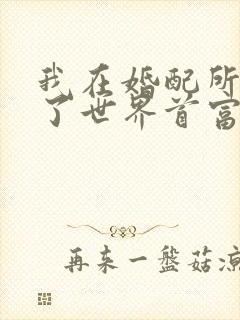 我在婚配所
了世界首富
再来一盘菇凉